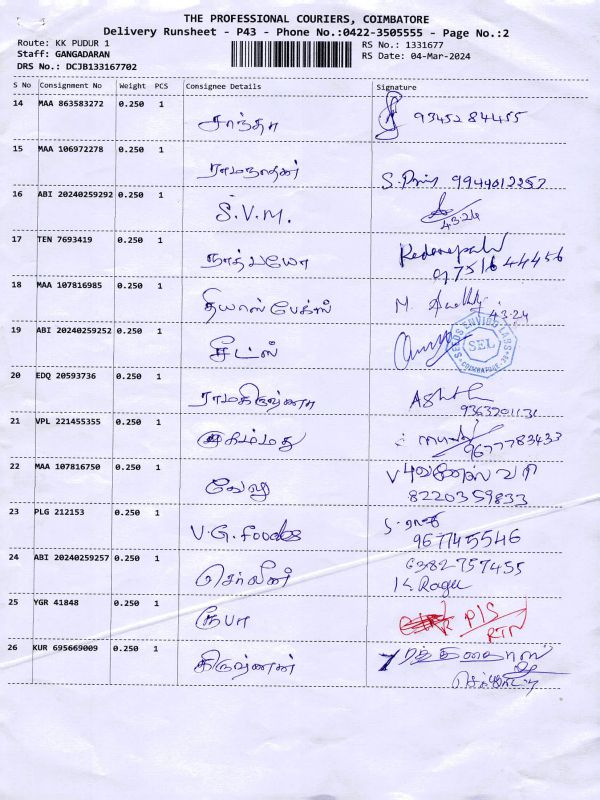 THE PROFESSIONAL COURIERS, COIMBATORE
Delivery Runsheet - P43 - Phone No.:0422-3505555 - Page No.:2
Route: KK PUDUR 1 RS No.: 1331677
Staff: GANGADARAN RS Date: 04-Mar-2024
DRS No.: DCJB133167702
S No Consignment No Weight PCS Consignee Details Signature
14 MAA 863583272 0.250 1 சாந்தா 9345284455
15 MAA 106972278 0.250 1 ராமநாதன் 9944012257
16 ABI 20240259292 0.250 1 S.V.M. 4324
17 TEN 7693419 0.250 1 9751644456
18 MAA 107816985 0.250 1 தியாஸ் பேக்ஸ் M. 43-24
19 ABI 20240259252 0.250 1 சீட்ஸ் SEEDS ENVIRO LABS SEL COIMBATORE
20 EDQ 20593736 0.250 1 ராமகிருஷ்ணா 9363201131
21 VPL 221455355 0.250 1 9677783433
22 MAA 107816750 0.250 1 வேலு 8220359833
23 PLG 212153 0.250 1 V.G. Foods 967745546
24 ABI 20240259257 0.250 1 செர்லின் 6382757455
K Ragu
25 YGR 41848 0.250 1 ரூபா P/S
RTN
26 KUR 695669009 0.250 1 கிருஷ்ணன்